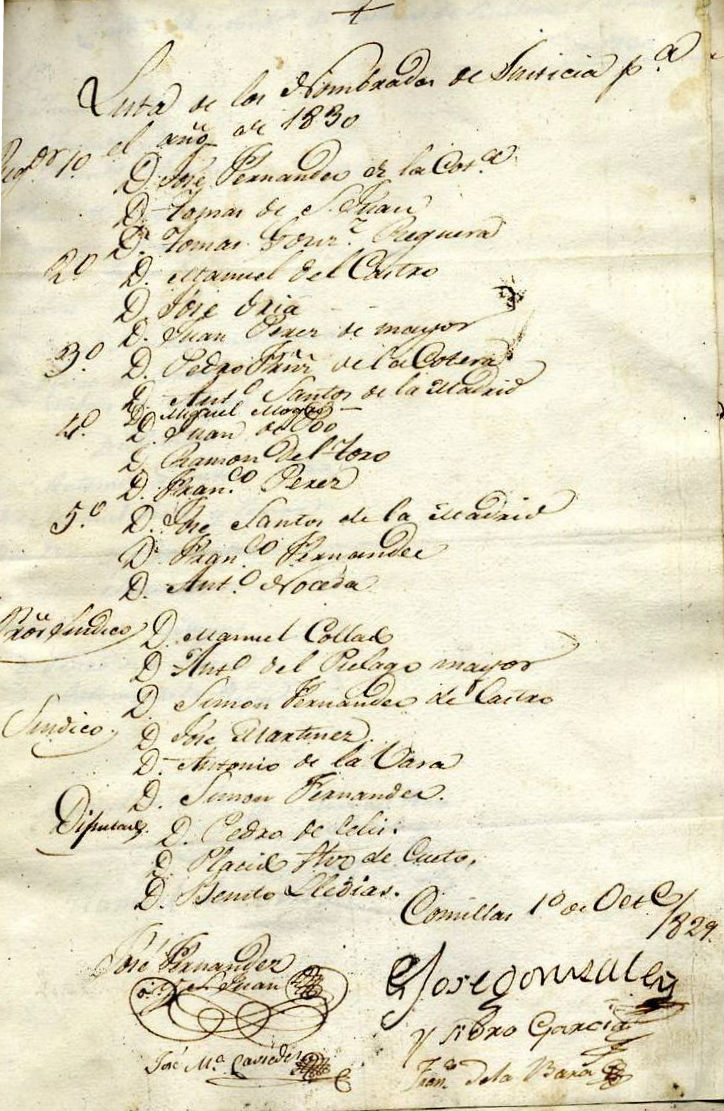 Lista de los Nombrados de Justicia p.ª
el año de 1830
Reg.dor 1.º D. José Fernandez de la Cot.ª
D. Tomas de S. Juan
D. Tomas Reguera
2.º D. Manuel del Castro
D. José Oria
D. Juan Perez de mayor
3.º D. Pedro Frñz de la Cotera
D. Ant.º Santos de la Madrid
D. Miguel
4.º D. Juan de Coo
D. Ramon del Toro
D. Fran.co Perez
5.º D. José Santos de la Madrid
D. Fran.co Fernandez
D. Ant.º Noceda
Síndico D. Manuel Collado
D. Ant.º del Pielago mayor
D. Simon Fernandez de Castro
Sindico D. José Martinez
D. Antonio de la Vara
D. Simon Fernandez.
Diputado. D. Pedro de Celis.
D. Placido de Cueto,
D. Benito Lledias.
Comillas 1.º de Oct.e
1829.
José Fernandez
S. Juan
José Gonzalez
Ysidro Garcia
José M.ª Caviedes
Fran.co de la Bara